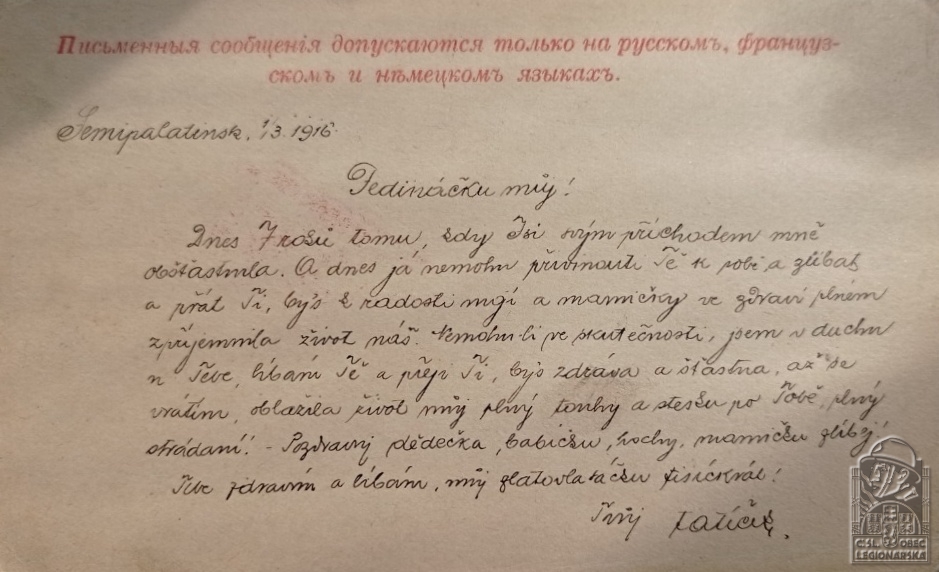 Письменныя сообщенія допускаются только на русскомъ, француз-
скомъ и нѣмецкомъ языкахъ.
Semipalatinsk, 1/3. 1916.
Jedináčku můj!
Dnes 7 roků tomu, kdy Jsi svým příchodem mně
obšťastnila. A dnes já nemohu přivinouti Tě k sobě a zlíbat
a přát Ti, bys k radosti mojí a mamičky ve zdraví plném
zpříjemnila život náš. Nemohu-li ve skutečnosti, jsem v duchu
u Tebe, líbám Tě a přeji Ti, bys zdráva a šťastna, až se
vrátím, oblažila život můj plný touhy a stesku po Tobě, plný
strádání! - Pozdravuj dědečka, babičku, hochy, mamičku zlíbej!
Tebe zdravím a líbám, můj zlatovláčku tisíckrát!
Tvůj tatíček.
ČSL. OBEC
LEGIONÁŘSKÁ